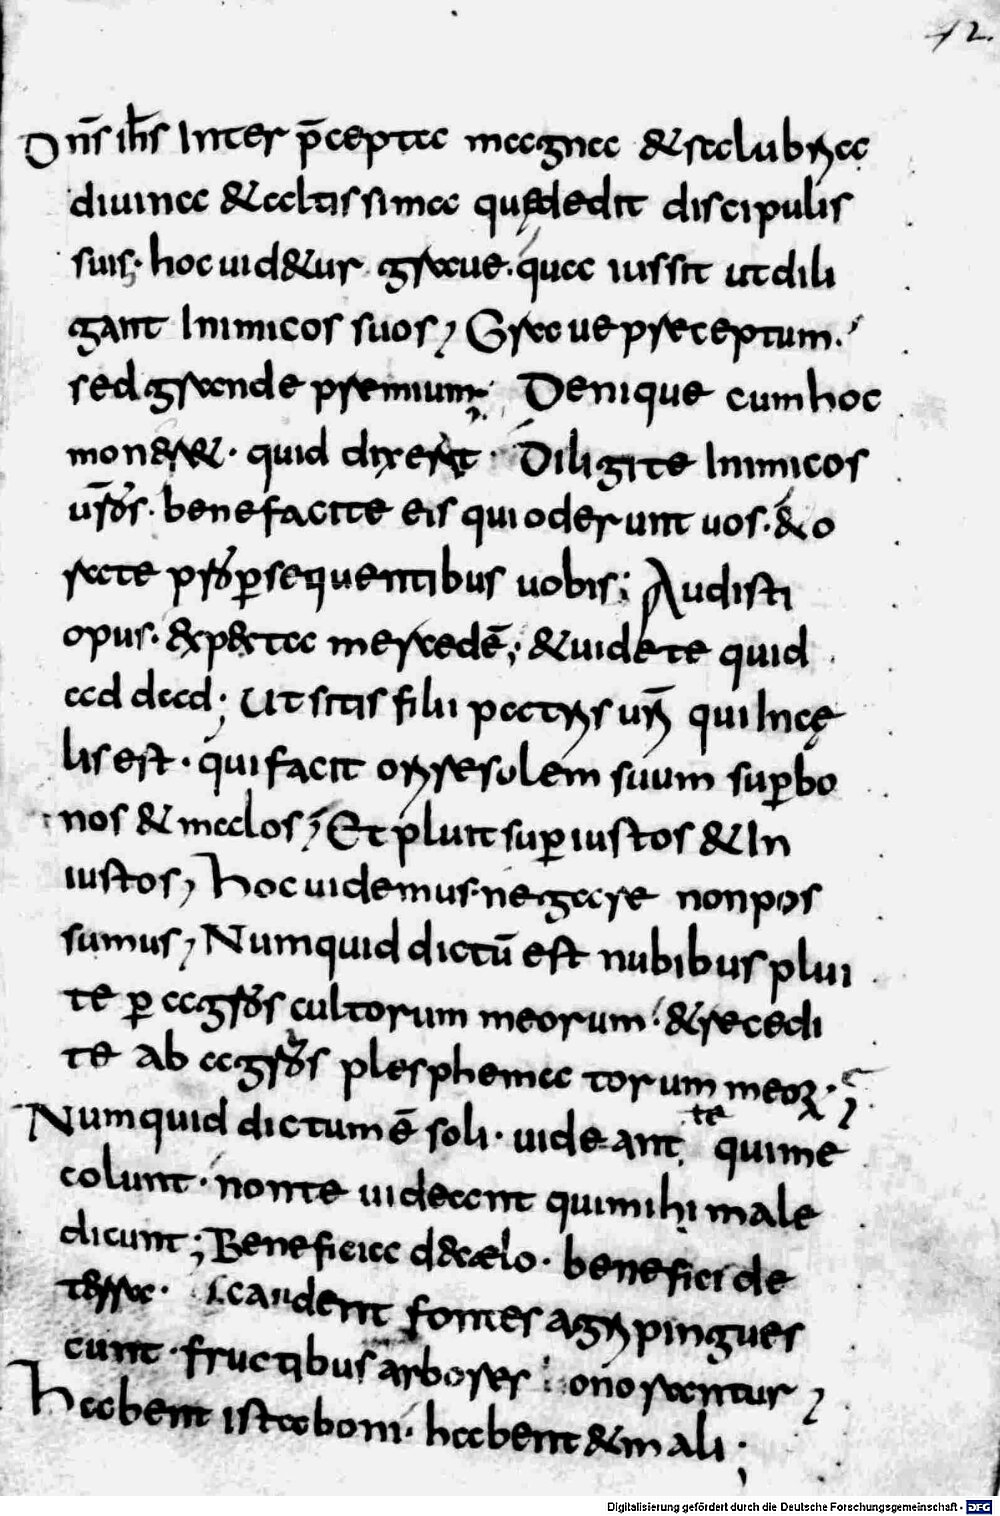 12.
Dn̄s ih̄s Inter p̄cepta magna & salubria
diuina & altissima quę dedit discipulis
suis· hoc uid&ur graue· quia iussit ut dili
gant Inimicos suos; Graue preceptum·
sed grande premium; Denique cum hoc
moner&· quid dixerit· Diligite Inimicos
ur̄os· benefacite eis qui oderunt uos· & o
rate pro ꝑsequentibus uobis; Audisti
opus· expecta mercedē; & uidete quid
addad; Ut sitis filii patris ur̄i qui In cę
lis est· qui facit oriri solem suum suꝑ bo
nos & malos; Et pluit suꝑ iustos & In
iustos; hoc uidemus· negare non pos
sumus; Numquid dictū est nubibus plui
te ꝑ agros cultorum meorum· & recedi
te ab agros plesphema torum meoꝝ·
Numquid dictum ē soli· uideant te qui me
colunt· non te uideant qui mihi male
dicunt; Beneficia de cælo· benefici de
terra· scaudent fontes agri pingues
cunt· fructibus arbores onorantur;
habent ista boni· habent & mali;
Digitalisierung gefördert durch die Deutsche Forschungsgemeinschaft · DFG